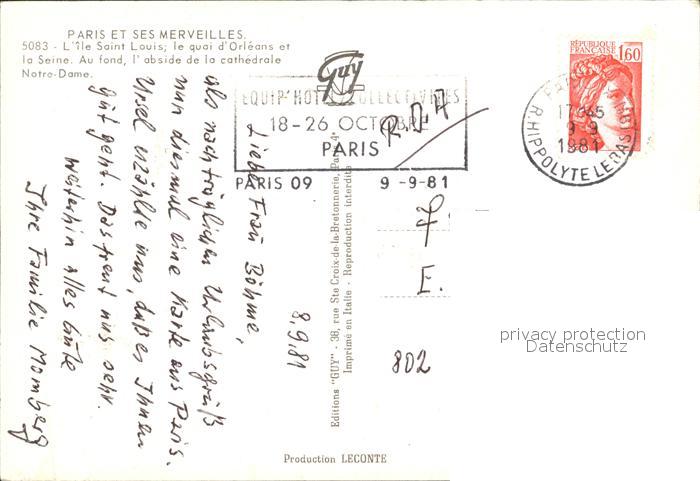 PARIS ET SES MERVEILLES.
5083 - L'île Saint Louis; le quai d'Orléans et
la Seine. Au fond, l'abside de la cathédrale
Notre-Dame.
Guy
EQUIP'HOTEL COLLECTIVITES
18-26 OCTOBRE
PARIS
PARIS 09 9-9-81
R.D.A
RÉPUBLIQUE
FRANÇAISE
1,60
PARIS
17H45
9-9
1981
R. HIPPOLYTE LEBAS
8.9.81
Liebe Frau Böhme,
als nachträglichen Urlaubsgruß
nun diesmal eine Karte aus Paris.
Ursel erzählte uns, daß es Ihnen
gut geht. Das freut uns sehr.
Weiterhin alles Gute
Ihre Familie Momberg
Editions "GUY" - 38, rue Ste Croix-de-la-Bretonnerie, Paris 4e
Imprimé en Italie - Reproduction interdite
F.
E.
802
privacy protection
Datenschutz
Production LECONTE